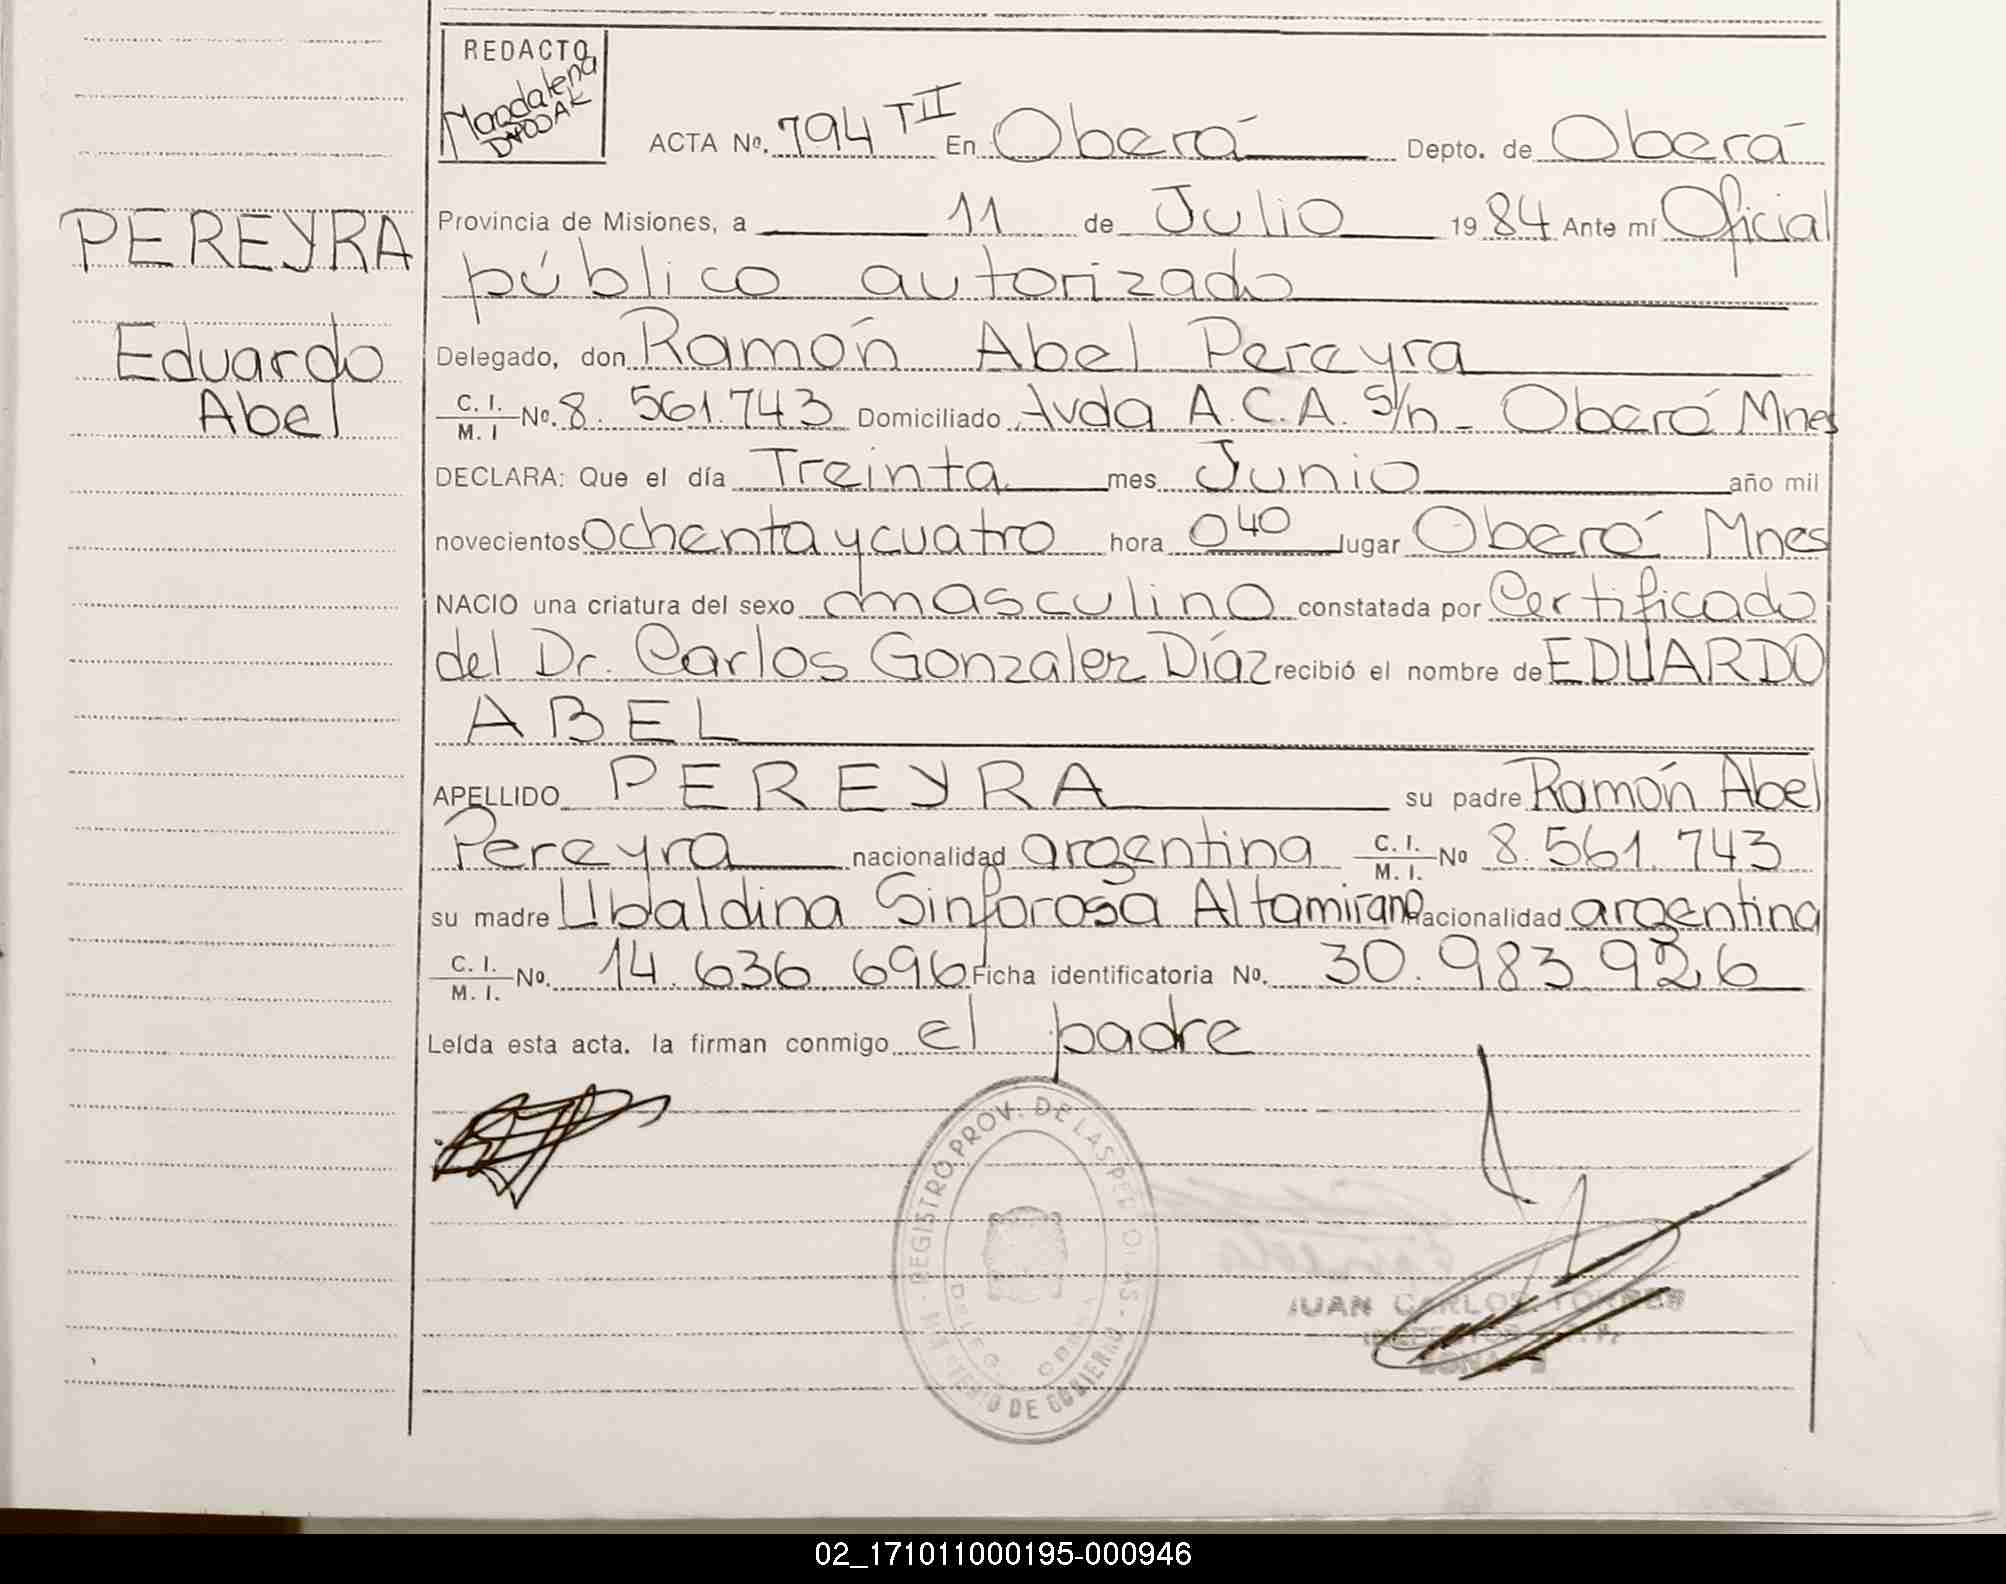 REDACTO
Magdalena
ACTA Nº. 794 TII En Oberá Depto. de Oberá
PEREYRA
Provincia de Misiones, a 11 de Julio 1984 Ante mí Oficial
público autorizado
Eduardo
Abel
Delegado, don Ramón Abel Pereyra
C. I. / M. I Nº. 8.561.743 Domiciliado Avda A.C.A. S/n - Oberá Mnes
DECLARA: Que el día Treinta mes Junio año mil
novecientos ochenta y cuatro hora 0 40 lugar Oberá Mnes
NACIO una criatura del sexo masculino constatada por Certificado
del Dr. Carlos Gonzalez Díaz recibió el nombre de EDUARDO
ABEL
APELLIDO PEREYRA su padre Ramón Abel
Pereyra nacionalidad argentina C. I. / M. I. Nº 8.561.743
su madre Ubaldina Sinforosa Altamirano nacionalidad argentina
C. I. / M. I. Nº. 14.636.696 Ficha identificatoria Nº. 30.983.926
Leída esta acta. la firman conmigo el padre
REGISTRO PROV. DE LAS PERSONAS
MINISTERIO DE GOBIERNO
DELEG.
JUAN CARLOS TORRES
INSPECTOR
02_171011000195-000946